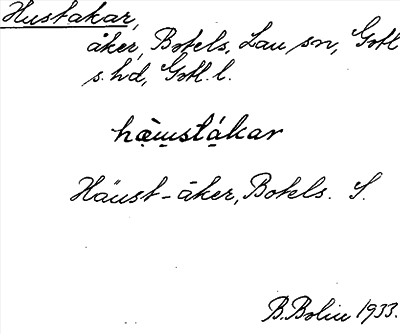 Hustakar,
åker, Botels, Lau sn, Gotl
s. hd, Gotl. l.
Häust-åker, Botels. S.
B. Bolin 1933.